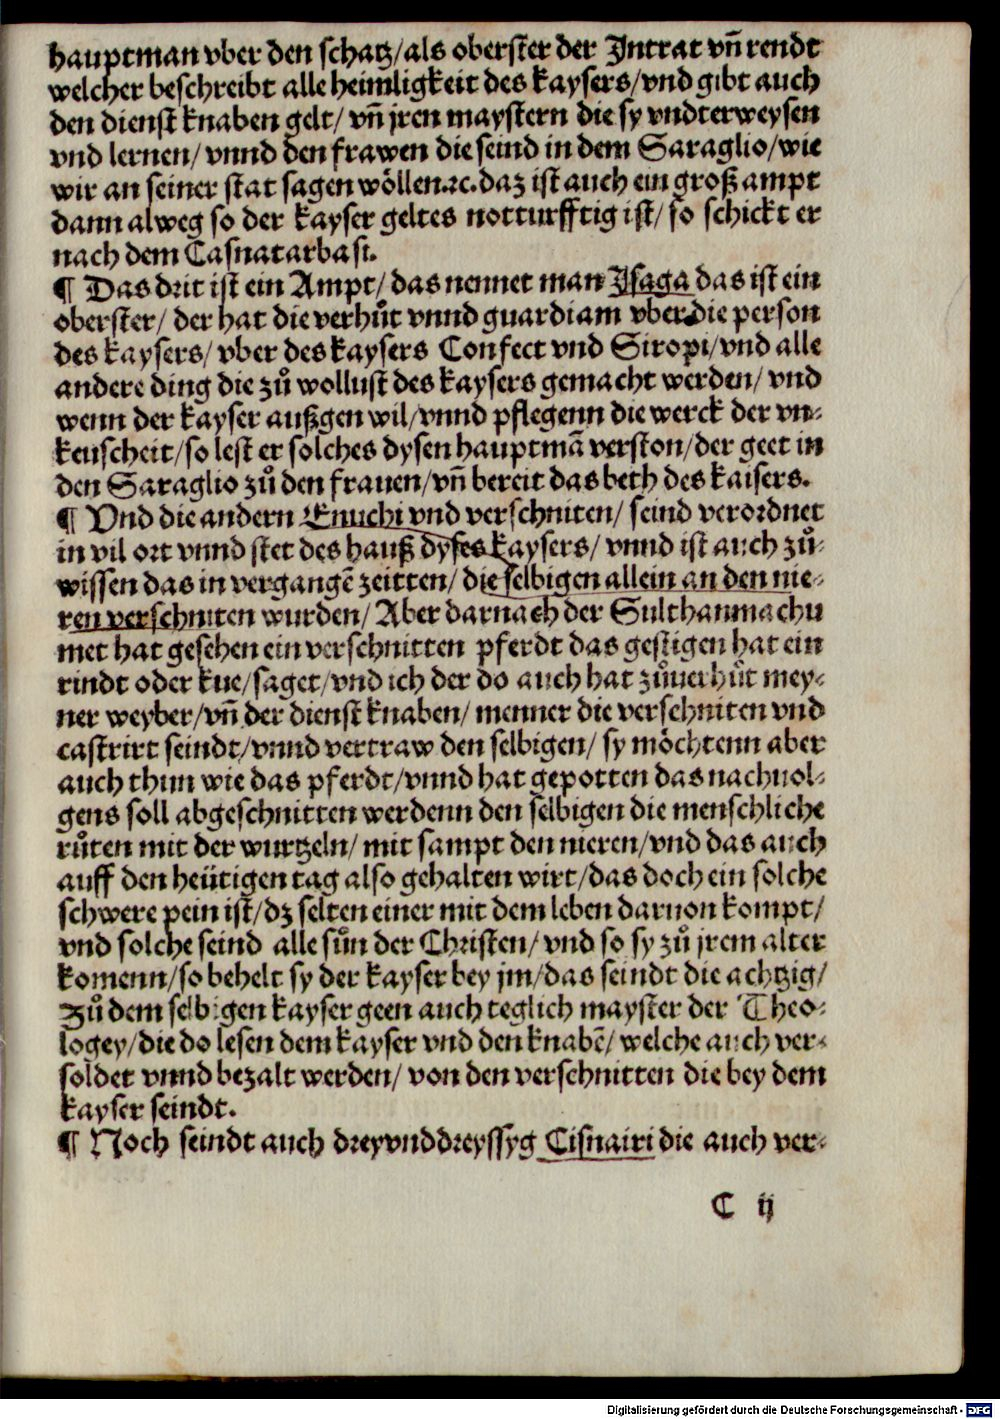 hauptman vber den schatz/als oberster der Intrat vñ rendt
welcher beschreibt alle heimligkeit des kaysers/vnd gibt auch
den dienst knaben gelt/ vñ jren maystern die sy vndterweysen
vnd lernen/ vnnd den frawen die seind in dem Saraglio/wie
wir an seiner stat sagen wöllen.ꝛc.daz ist auch ein groß ampt
dann alweg so der kayser geltes notturfftig ist/ so schickt er
nach dem Casnatarbasi.
¶ Das drit ist ein Ampt/ das nennet man Isaga das ist ein
oberster/ der hat die verhuͤt vnnd guardiam vber die person
des kaysers/ vber des kaysers Confect vnd Siropi/vnd alle
andere ding die zuͦ wollust des kaysers gemacht werden/ vnd
wenn der kayser außgen wil/vnnd pflegenn die werck der vn-
keuscheit/so lest er solches dysen hauptmã verston/der geet in
den Saraglio zuͦ den frauen/vñ bereit das beth des kaisers.
¶ Vnd die andern Enuchi vnd verschniten/ seind verordnet
in vil ort vnnd stet des hauß dyses kaysers/ vnnd ist auch zuͦ-
wissen das in vergangẽ zeitten/ die selbigen allein an den nie-
ren verschniten wurden/ Aber darnach der Sulthanmachu
met hat gesehen ein verschnitten pferdt das gestigen hat ein
rindt oder kue/saget/vnd ich der do auch hat zuͦuerhuͤt mey-
ner weyber/vñ der dienst knaben/ menner die verschniten vnd
castrirt seindt/vnnd vertraw den selbigen/ sy möchtenn aber
auch thun wie das pferdt/vnnd hat gepotten das nachuol-
gens soll abgeschnitten werdenn den selbigen die menschliche
ruͦten mit der wurtzeln/ mit sampt den nieren/vnd das auch
auff den heütigen tag also gehalten wirt/das doch ein solche
schwere pein ist/dz selten einer mit dem leben daruon kompt/
vnd solche seind alle suͤn der Christen/ vnd so sy zuͦ jrem alter
komenn/so behelt sy der kayser bey jm/das seindt die achtzig/
Zuͦ dem selbigen kayser geen auch teglich mayster der Theo-
logey/die do lesen dem kayser vnd den knabẽ/ welche auch ver-
soldet vnnd bezalt werden/ von den verschnitten die bey dem
kayser seindt.
¶ Noch seindt auch dreyvnddreyssyg Cisnairi die auch ver-
C ij
Digitalisierung gefördert durch die Deutsche Forschungsgemeinschaft - DFG